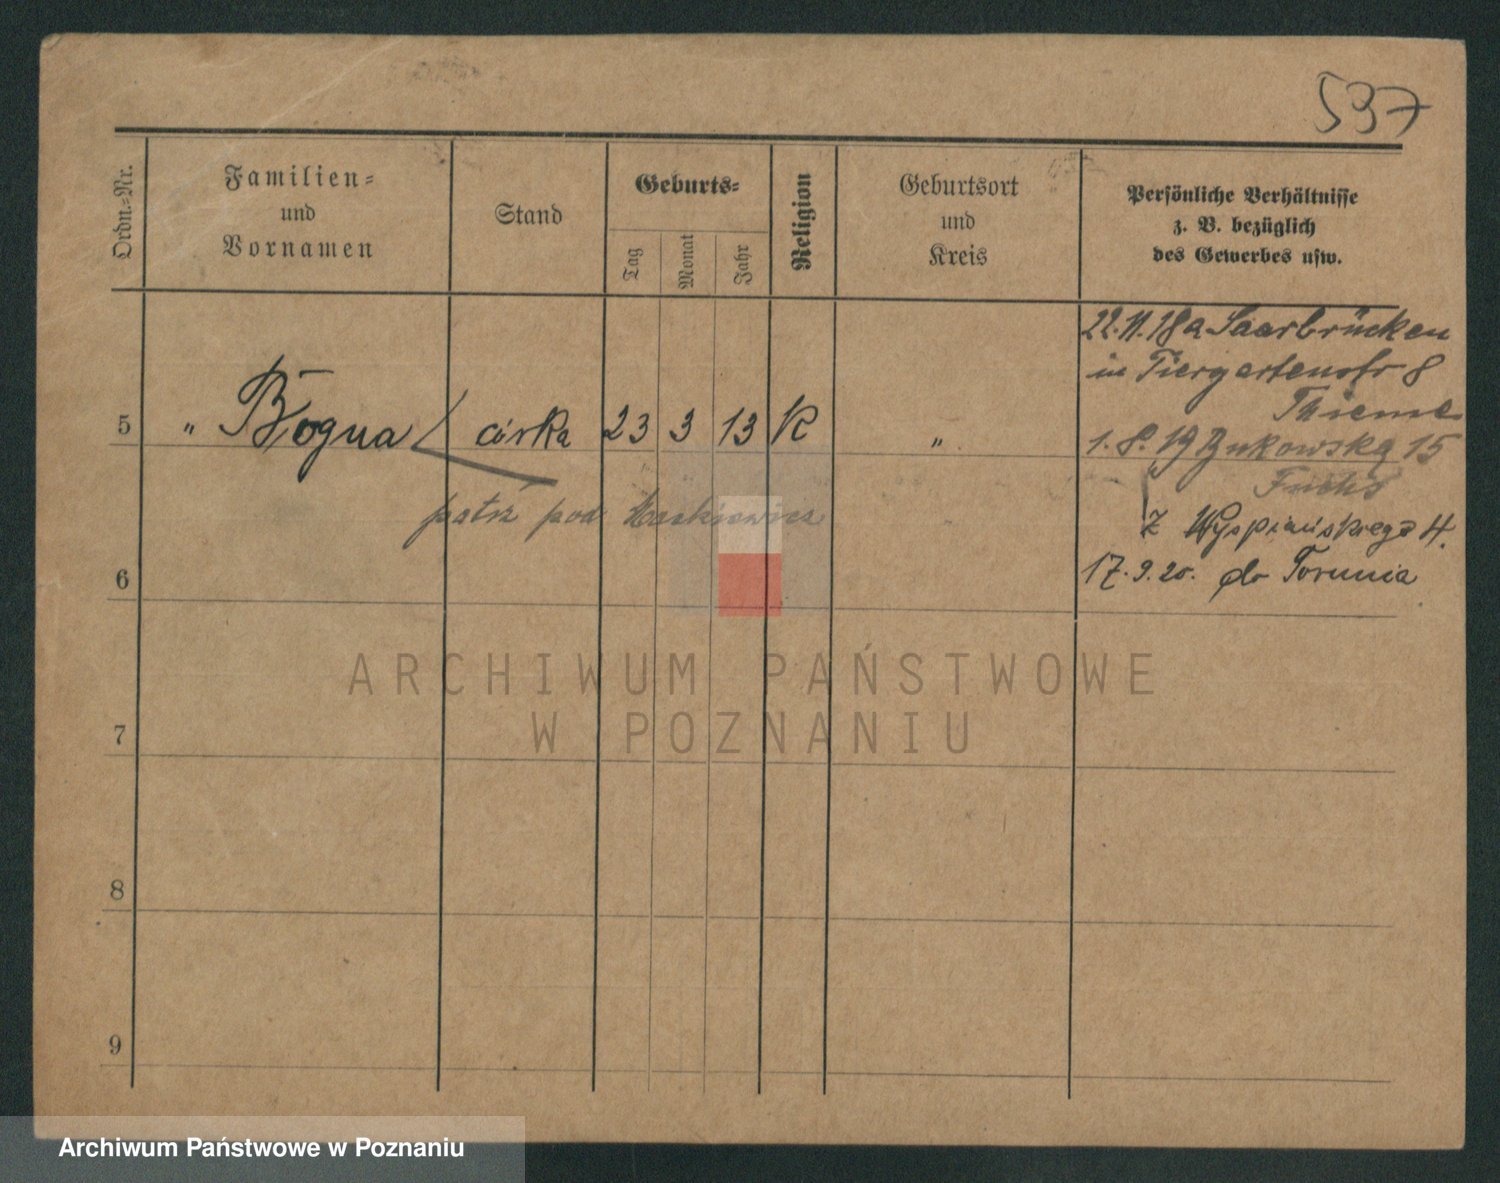 537
Ordn.=Nr.
Familien=
und
Vornamen
Stand
Geburts=
Tag
Monat
Jahr
Religion
Geburtsort
und
Kreis
Persönliche Verhältnisse
z. B. bezüglich
des Gewerbes usw.
22.11.18 a Saarbrücken
in Tiergartenstr 8
Thieme
5 " Bogna córka 23 3 13 K " 1.8.19 Bukowska 15
Fuchs
patrz pod
z Wyspiańskiego 4.
6 17.9.20. do Torunia
ARCHIWUM PAŃSTWOWE
W POZNANIU
7
8
9
Archiwum Państwowe w Poznaniu